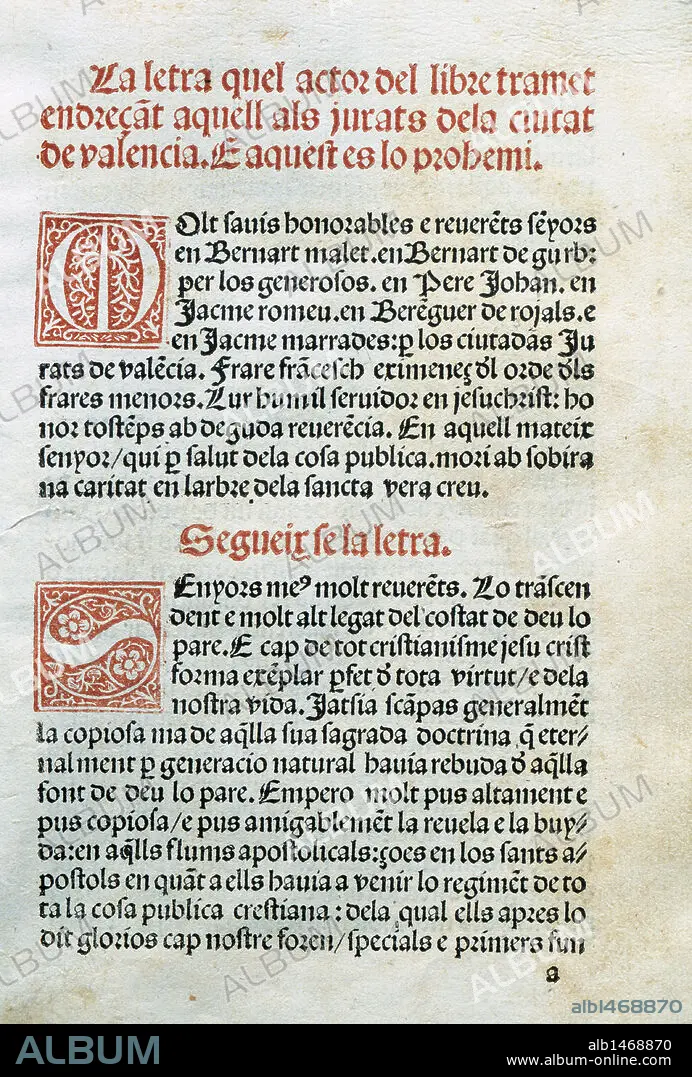 La letra quel actor del libre tramet
endreçãt aquell als jurats dela ciutat
de valencia. E aquest es lo prohemi.
MOlt sauis honorables e reuerẽts sẽyors
en Bernart malet. en Bernart de gurb:
ꝑ los generosos. en Pere Johan. en
Jacme romeu. en Berẽguer de rojals. e
en Jacme marrades: ꝑ los ciutadãs Ju
rats de valẽcia. Frare frãcesch eximeneç ďl orde ďls
frares menors. Lur humil seruidor en jesuchrist: ho
nor tostẽps ab deguda reuerẽcia. En aquell mateix
senyor/qui ꝑ salut dela cosa publica. mori ab sobira
na caritat en larbre dela sancta vera creu.
Segueix se la letra.
SEnyors meꝰ molt reuerẽts. Lo trãscen
dent e molt alt legat del costat de deu lo
pare. E cap de tot cristianisme jesu crist
forma exẽplar ꝑfet ď tota virtut/e dela
nostra vida. Jatsia scãpas generalmẽt
la copiosa ma de aq̃lla sua sagrada doctrina q̃ eter/
nal ment ꝑ generacio natural hauia rebuda ď aq̃lla
font de deu lo pare. Empero molt pus altament e
pus copiosa/e pus amigablemẽt la reuela e la buy/
da: en aq̃lls flums apostolicals: çoes en los sants a/
postols en quãt a ells hauia a venir lo regimẽt de to
ta la cosa publica crestiana: dela qual ells apres lo
dit glorios cap nostre foren/specials e primers fun
a
ALBUM
alb1468870
ALBUM
alb1468870
www.album-online.com